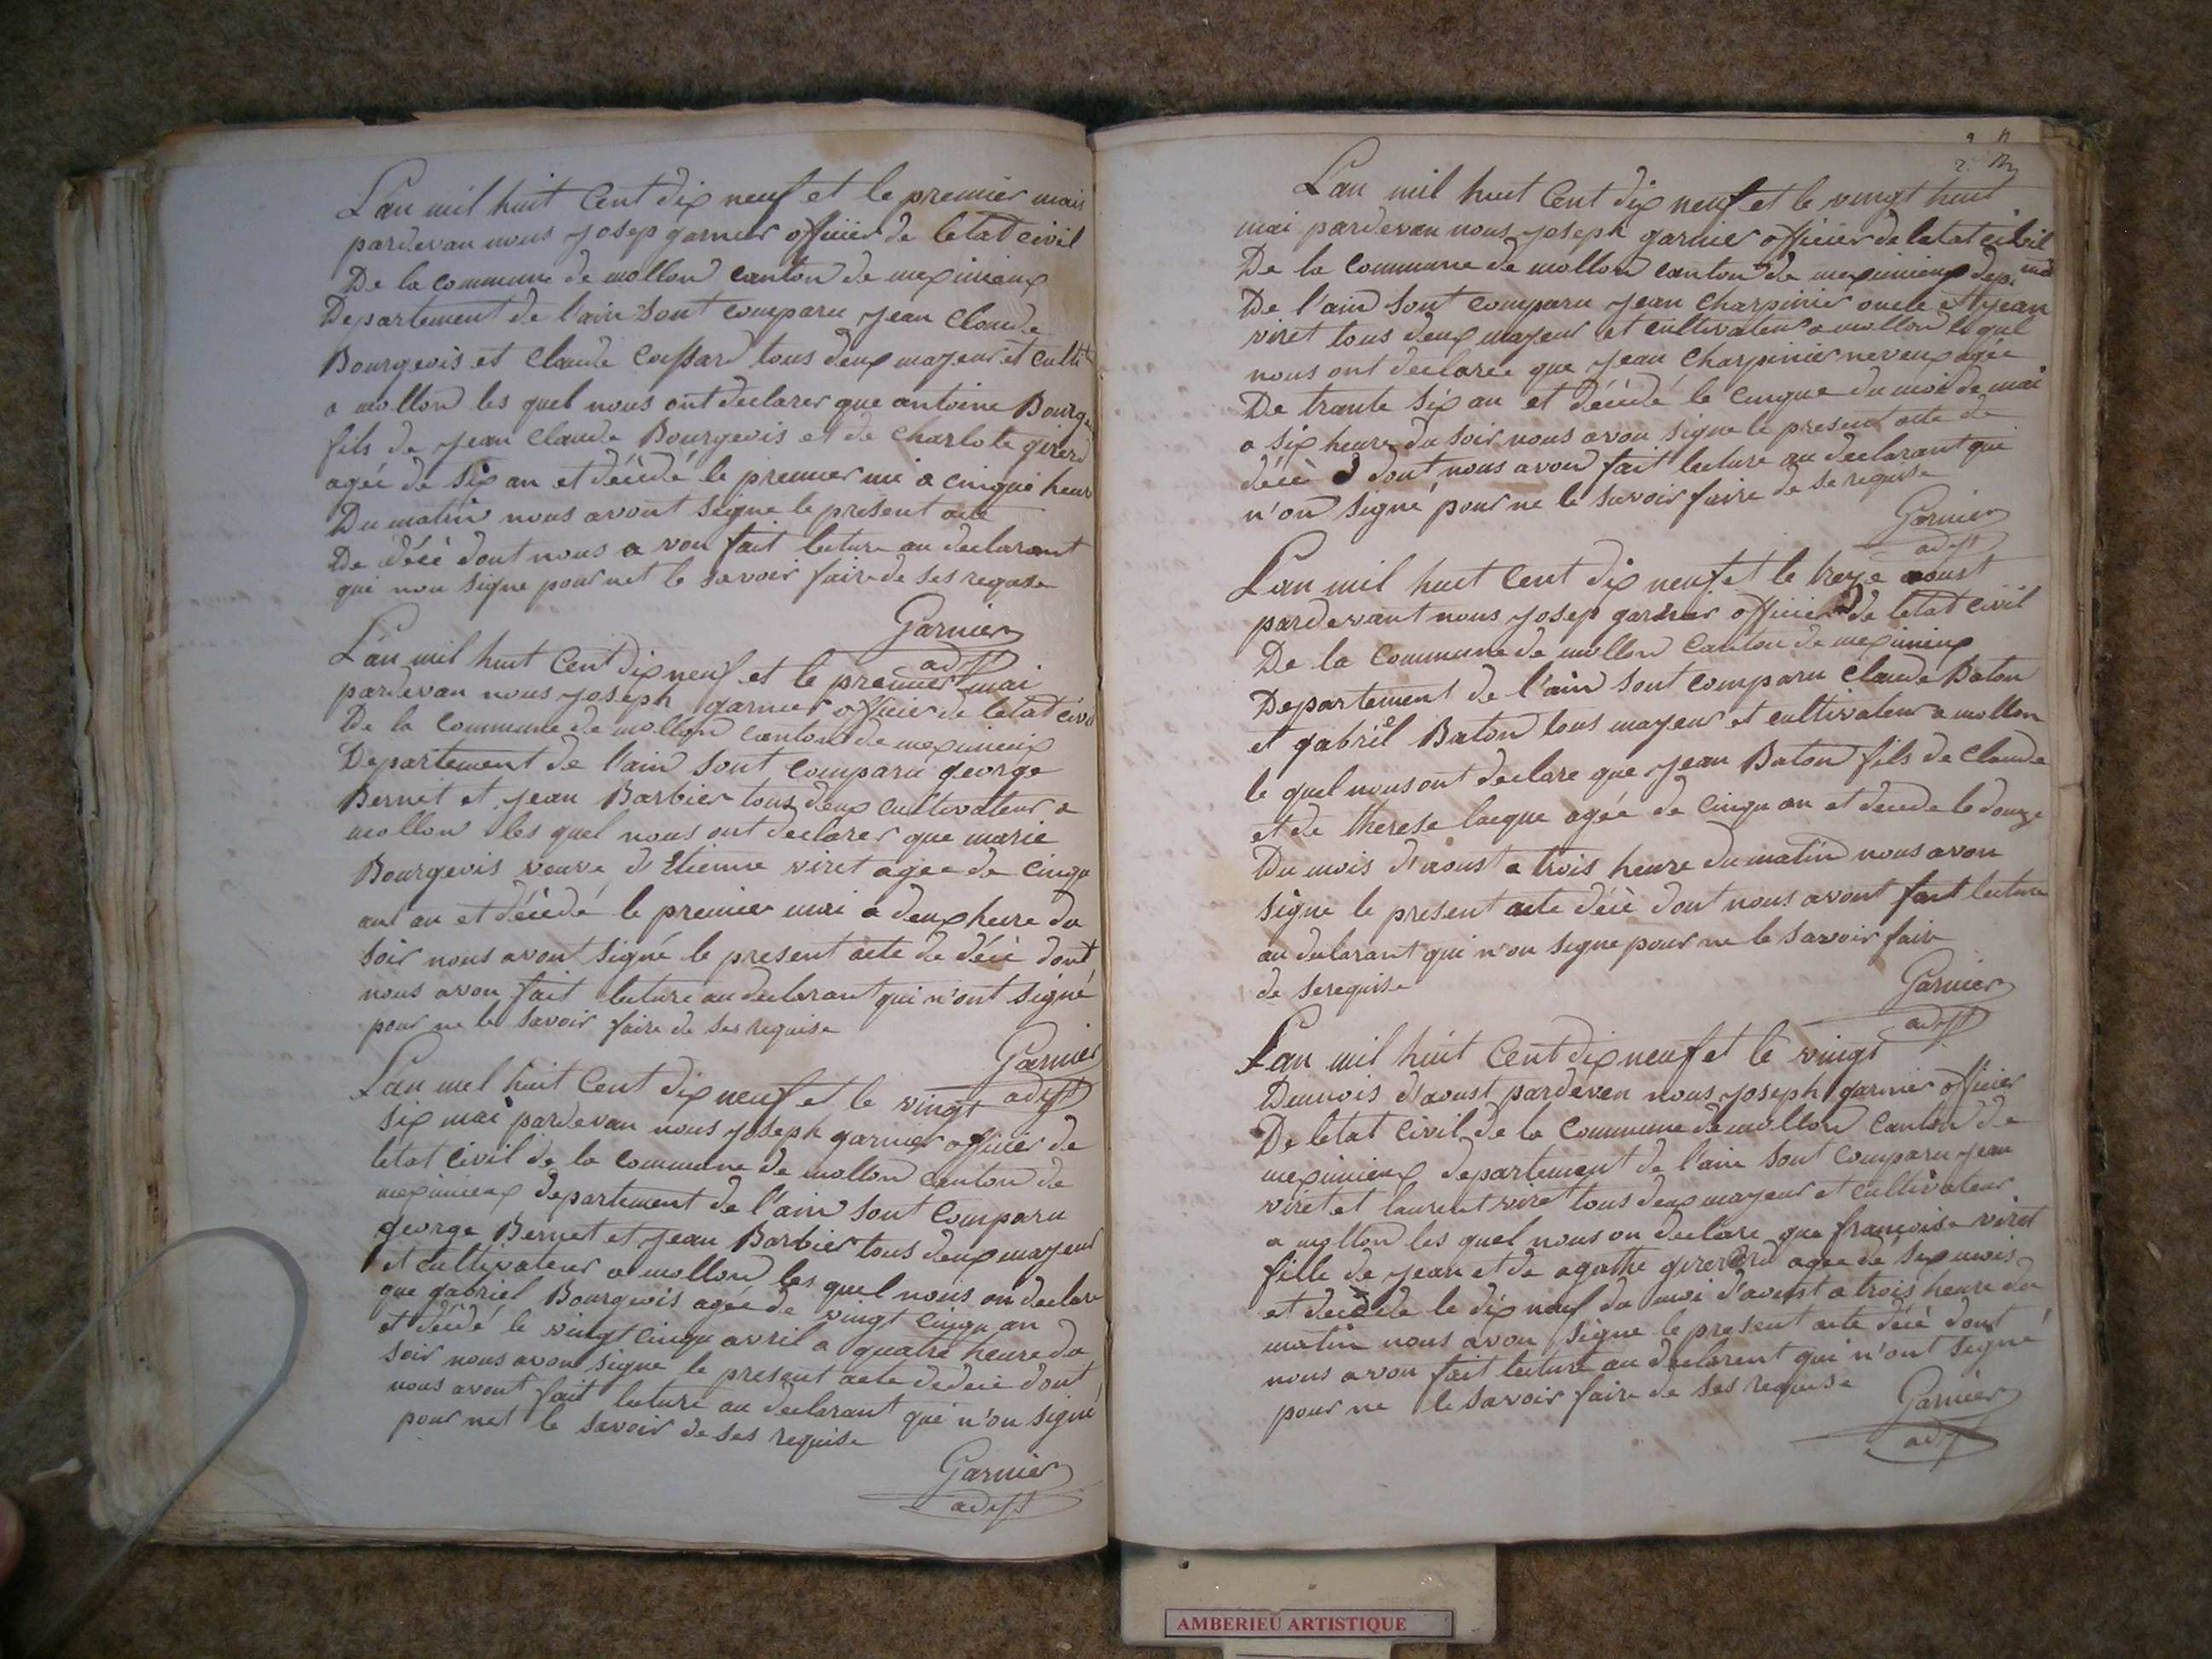 L'an mil huit Cent dix neuf et le premier mais
pardevan nous josep garnier officier de letat civil
De la commune de mollon canton de meximieux
Departement de l'ain sont comparu jean Claude
Bourgeois et Claude Cassard tous deux mayeur et culti
a mollon les quel nous ont declarer que antoine Bourge
fils de jean Claude Bourgeois et de Charlote girerd
agée de six an et décédé le premier mi a cinque heur
Du matin nous avont signe le present acte
De décè dont nous a von fait lecture au declarant
qui non signe pour net le savoir faire de ses reqise
Garnier
adjt
L'an mil huit Cent dix neuf et le premier mai
pardevan nous joseph garnier officier de letat civil
De la Commune de mollon canton de meximieux
Departement de l'ain sont comparu george
Bernet et jean Barbier tous deux cultivateur a
mollon les quel nous ont declarer que marie
Bourgeois veuve d'Etienne viret agee de Cinqu
ant an et décédé le premier mai a deux heure du
soir nous avont signé le present acte de décè dont
nous avon fait lecture au declarant qui n'ont signé
pour ne le savoir faire de ses requise
Garnier
adjt
L'an mel huit Cent dix neuf et le vingt
six mai pardevan nous joseph garnier officier de
letat civil de la commune de mollon Canton de
meximieux departement de l'ain sont comparu
george Bernet et jean Barbier tous deux mayeur
et cultivateur a mollon les quel nous on declare
que gabriel Bourgeois agée de vingt cinqu an
et décédé le vingt cinqu avril a quatre heure du
soir nous avon signe le present acte de decè dont
nous avont fait lecture au declarant qui n'on signé
pour net le savoir de ses requise
Garnier
adjt
L'an mil huit Cent dix neuf et le vingt huit
mai pardevan nous joseph garnier officier de letat civil
De la Commune de mollon canton de meximieux dep
De l'ain sont comparu jean Charpinier oncle et jean
viret tous deux mayeur et cultivateur a mollon le quel
nous ont declarée que jean Charpinier neveux agée
De trante six an et décédé le cinque du moi de mai
a six heure du soir nous avon signe le present acte de
décè dont nous avon fait lecture au declarant qui
n'on signé pour ne le savoir faire de se requise
Garnier
adjt
L'an mil huit Cent dix neuf et le treze aoust
pardevant nous josep garnier officier de letat civil
De la Commune de mollon Canton de meximieux
Departement de l'ain sont comparu Claude Baton
et gabriel Baton tous mayeur et cultivateur a mollon
le quel nous ont declare que jean Baton fils de Claude
et de therese lacque agée de cinqu an et decede le douze
Du mois d'aoust a trois heure du matin nous avon
signe le present acte décè dont nous avont fait lecture
au declarant qui n'on signe pour ne le savoir faire
de se requise
Garnier
adjt
L'an mil huit Cent dix neuf et le vingt
Dumois d'aoust pardeven nous joseph garnier officier
De letat civil de la Commune de mollon Canton de
meximieux departement de l'ain sont comparu jean
viret et laurent viret tous deux mayeur et cultivateur
a mollon les quel nous on declare que françoise viret
fille de jean et de agathe girerd agee de six mois
et decede le dix neuf du moi d'avoust a trois heure du
matin nous avon signe le present acte décè dont
nous avon fait lecture au declarent qui n'ont signé
pour ne le savoir faire de ses requise
Garnier
adjt
AMBERIEU ARTISTIQUE